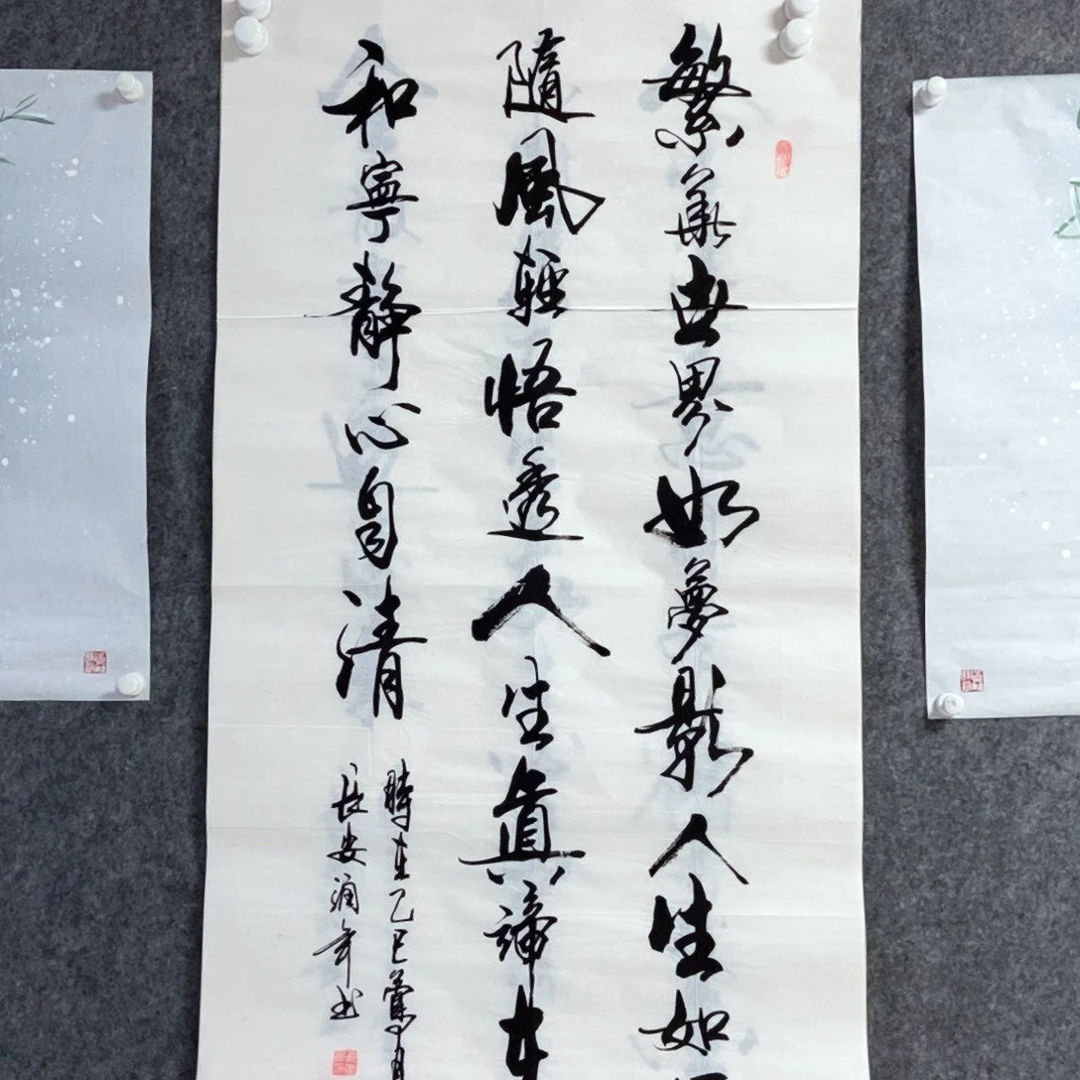 繁華世界如夢影人生如
隨風輕悟透人生真諦在
和寧靜心自清
時在乙巳
長安潤年书